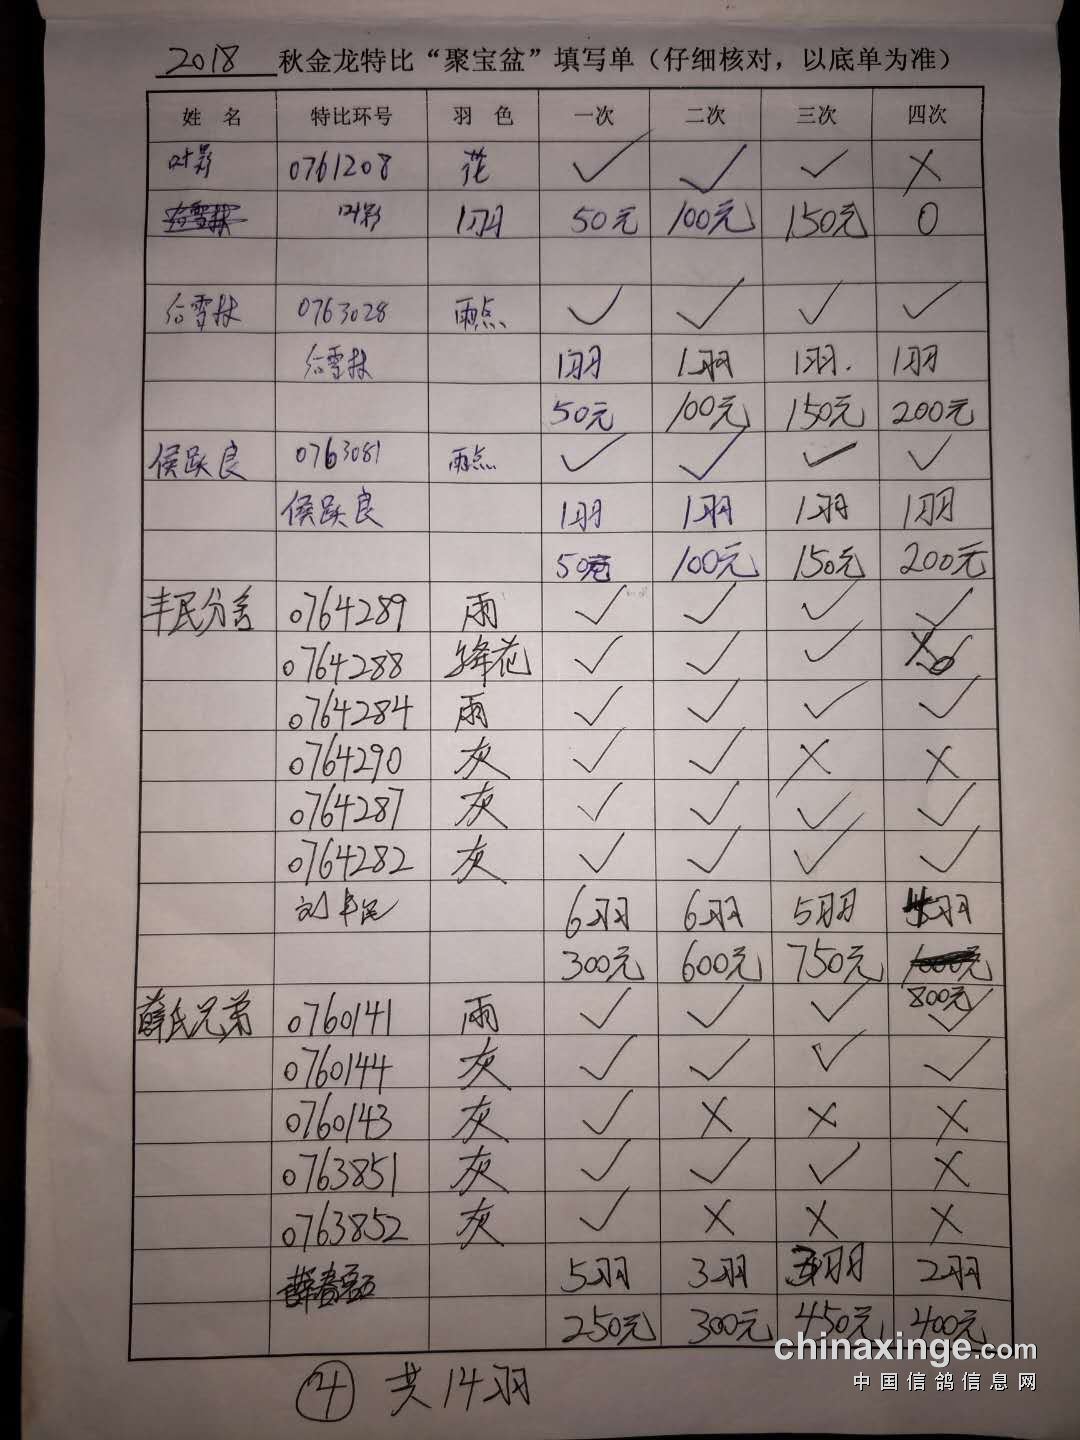 2018 秋金龙特比“聚宝盆”填写单（仔细核对，以底单为准）
姓 名 特比环号 羽 色 一次 二次 三次 四次
叶影 0761208 花 ✓ ✓ ✓ ×
叶影 1羽 50元 100元 150元 0
雪林 0763028 雨点 ✓ ✓ ✓ ✓
雪林 1羽 1羽 1羽. 1羽
50元 100元 150元 200元
侯跃良 0763081 雨点 ✓ ✓ ✓ ✓
侯跃良 1羽 1羽 1羽 1羽
50元 100元 150元 200元
丰民分舍 0764289 雨 ✓ ✓ ✓ ✓
0764288 绛花 ✓ ✓ ✓ ×
0764284 雨 ✓ ✓ ✓ ✓
0764290 灰 ✓ ✓ × ×
0764287 灰 ✓ ✓ ✓ ✓
0764282 灰 ✓ ✓ ✓ ✓
刘丰民 6羽 6羽 5羽 4羽
300元 600元 750元 1000元
800元
薛氏兄弟 0760141 雨 ✓ ✓ ✓ ✓
0760144 灰 ✓ ✓ ✓ ✓
0760143 灰 ✓ × × ×
0763851 灰 ✓ ✓ ✓ ×
0763852 灰 ✓ × × ×
5羽 3羽 3羽 2羽
250元 300元 450元 400元
④ 共14羽
chinaxinge.com
中国信鸽信息网